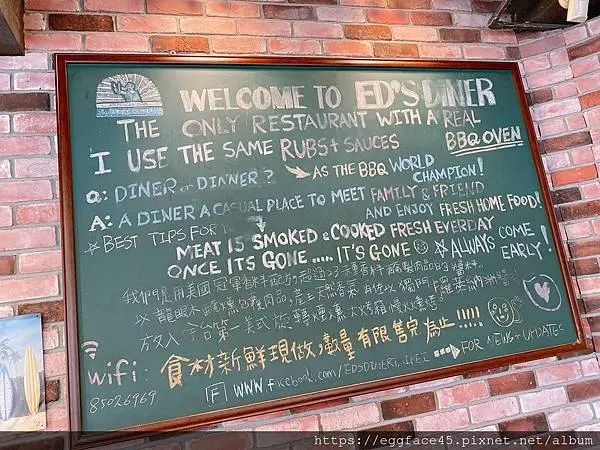 WELCOME TO ED'S DINER
THE ONLY RESTAURANT WITH A REAL
BBQ OVEN
I USE THE SAME RUBS + SAUCES
AS THE BBQ WORLD
CHAMPION!
Q: DINER or DINNER?
A: A DINER A CASUAL PLACE TO MEET FAMILY & FRIEND
AND ENJOY FRESH HOME FOOD!
☆ BEST TIPS FOR
MEAT IS SMOKED & COOKED FRESH EVERDAY
ONCE ITS GONE ..... IT'S GONE
☆ ALWAYS COME
EARLY!
我們是用美國冠軍香料配方
以龍眼木
放入全台第一美式旋轉
食材新鮮現做，數量有限售完為止!!!!!
wifi:
85026969
WWW.facebook.com/EDSDINERTAIPEI
FOR NEWS + UPDATES
https://eggface45.pixnet.net/album